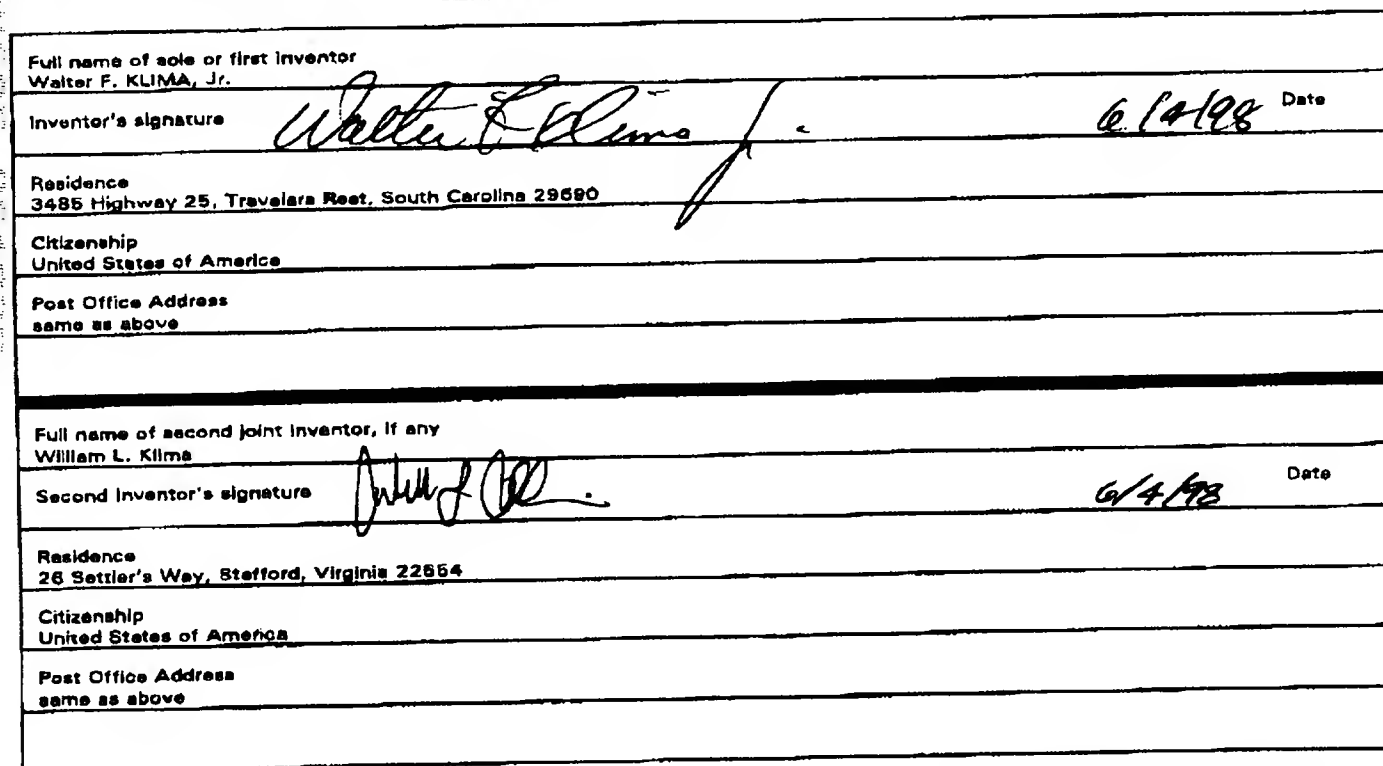 Full name of sole or first inventor
Walter F. KLIMA, Jr.
Inventor's signature Walter F Klima Jr. 6/4/98 Date
Residence
3485 Highway 25, Travelers Rest, South Carolina 29690
Citizenship
United States of America
Post Office Address
same as above
Full name of second joint inventor, if any
William L. Klima
Second Inventor's signature 6/4/98 Date
Residence
26 Settler's Way, Stafford, Virginia 22554
Citizenship
United States of America
Post Office Address
same as above